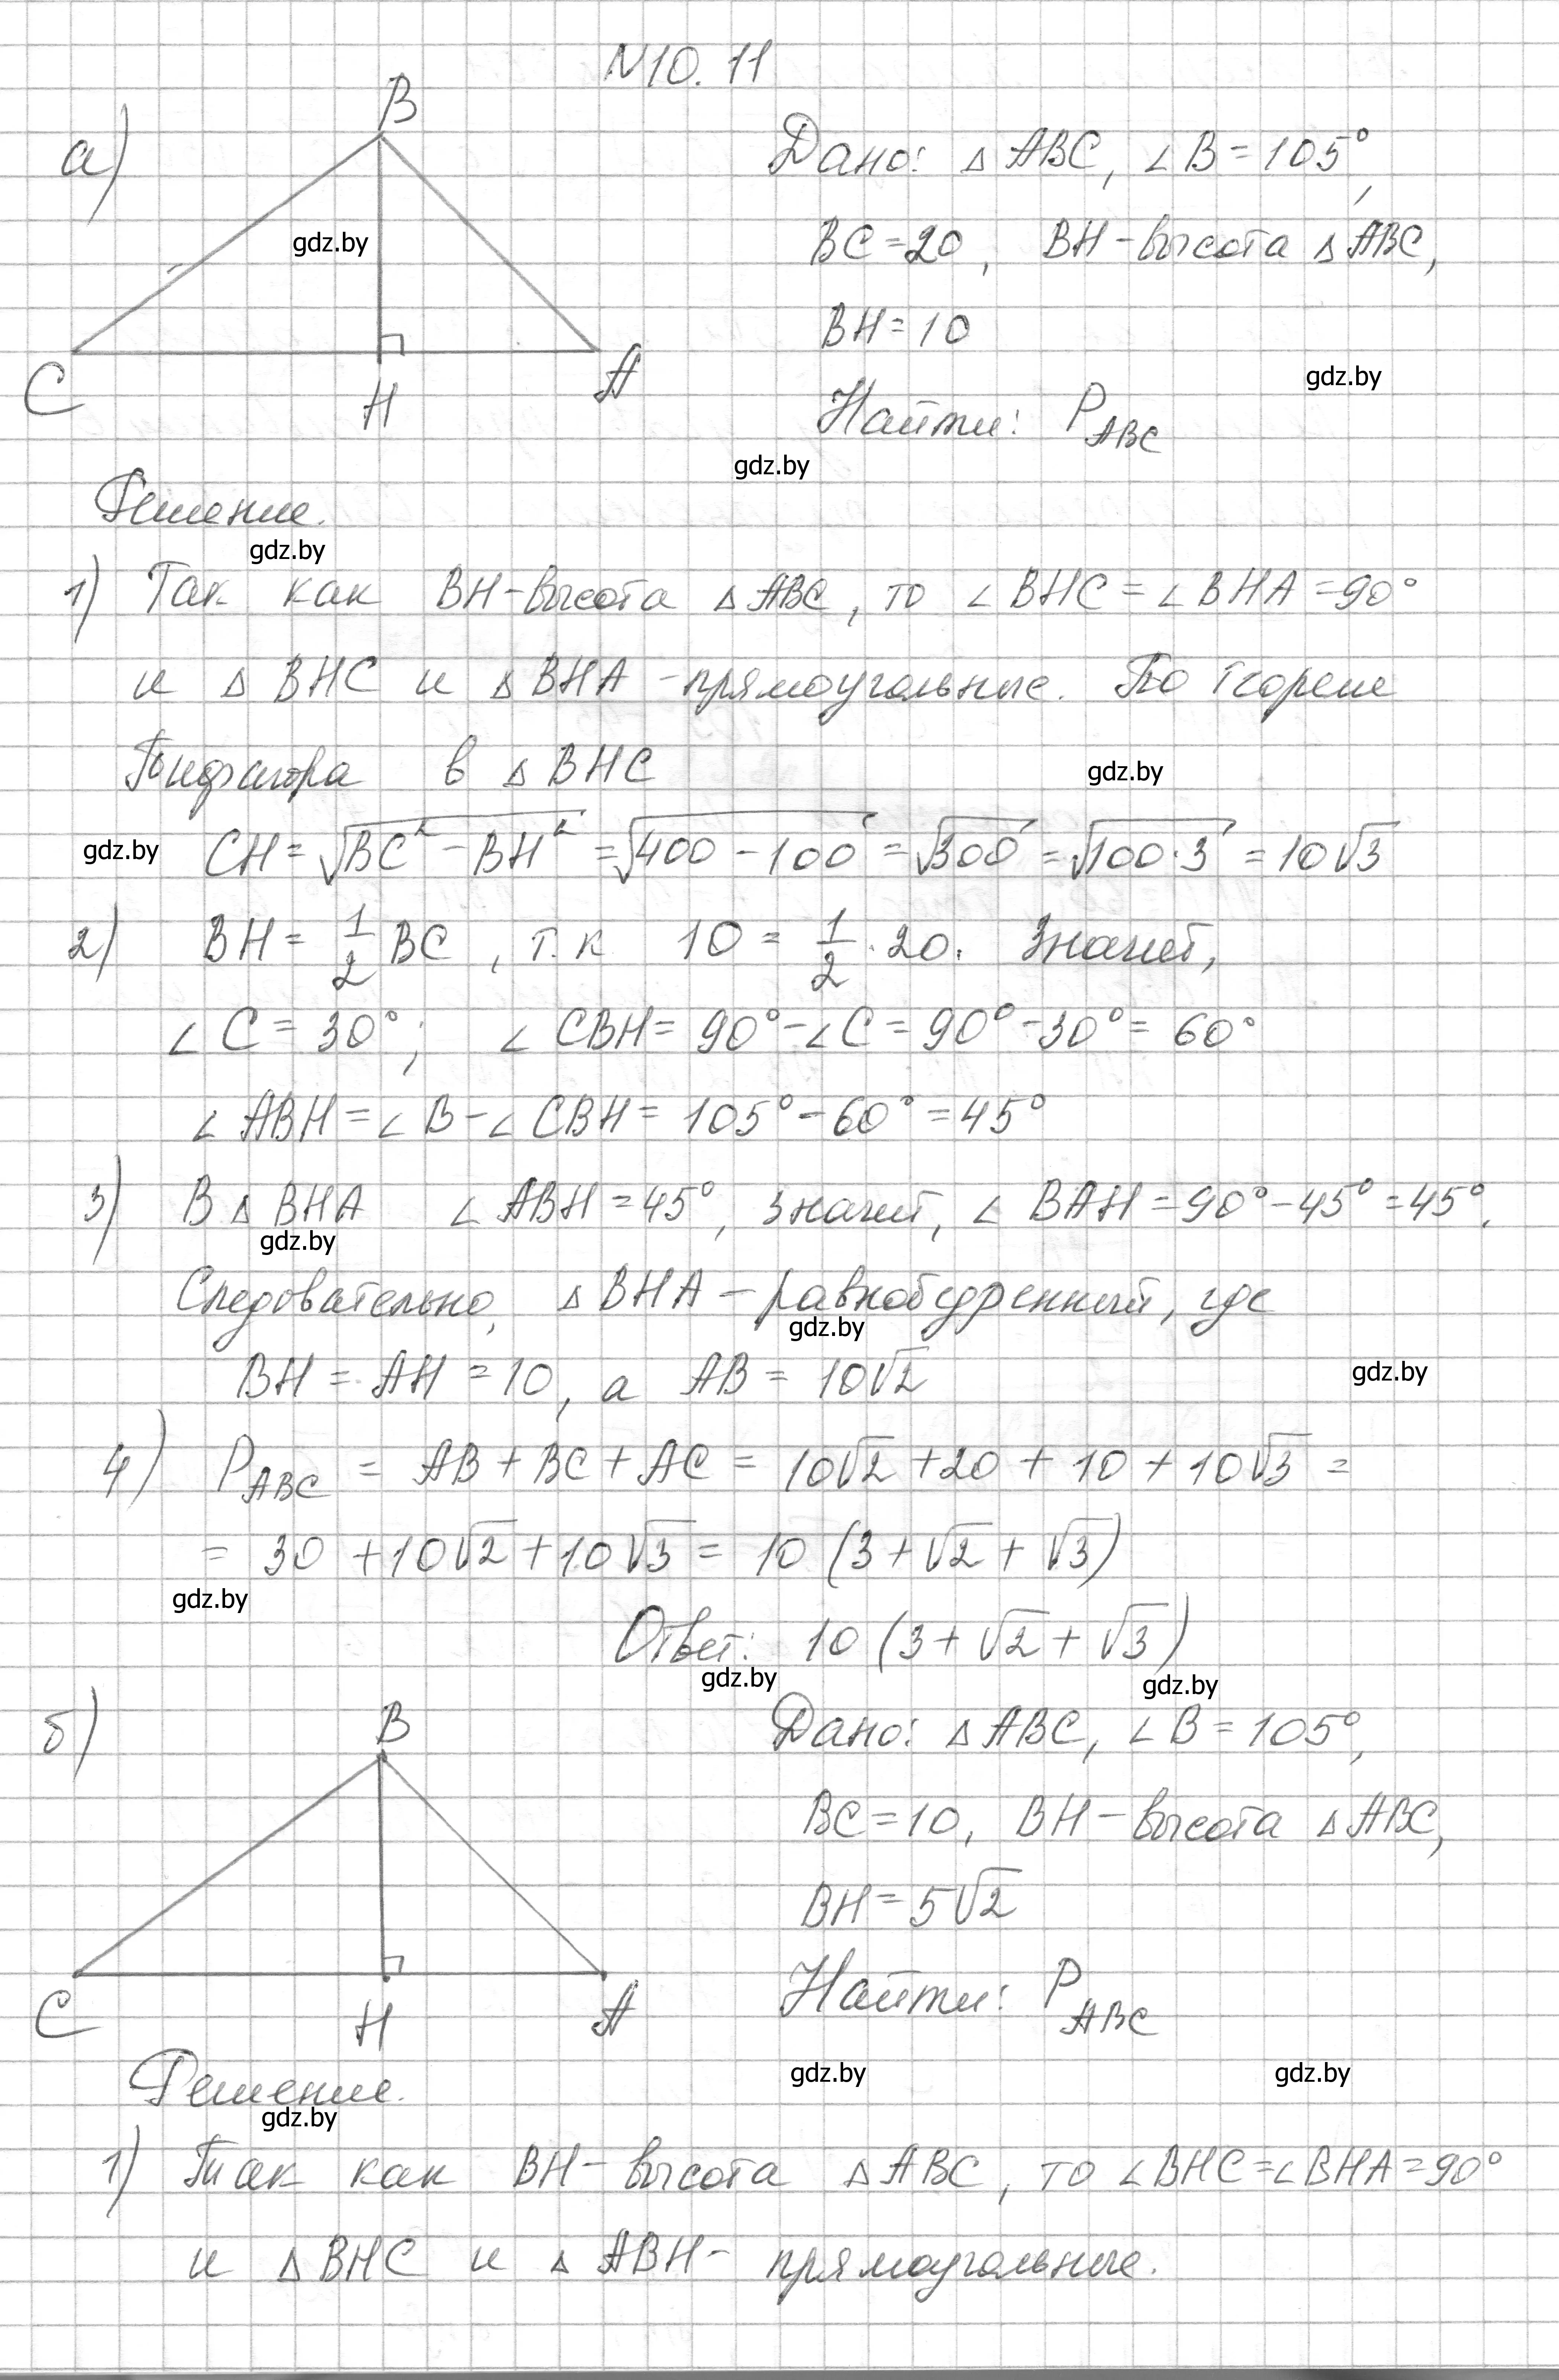 N10. 11
а)
B
C
H
A
gdz.by
Дано: △ ABC, ∠B = 105°,
BC = 20, BH - высота △ ABC,
BH = 10
gdz.by
Найти: P_ABC
gdz.by
Решение.
gdz.by
1) Так как BH - высота △ ABC, то ∠BHC = ∠BHA = 90°
и △ BHC и △ BHA - прямоугольные. По теореме
Пифагора в △ BHC
gdz.by
gdz.by
CH = √(BC² - BH²) = √(400 - 100) = √300 = √(100·3) = 10√3
2) BH = 1/2 BC, т.к 10 = 1/2 · 20. Значит,
∠C = 30°; ∠CBH = 90° - ∠C = 90° - 30° = 60°
∠ABH = ∠B - ∠CBH = 105° - 60° = 45°
3) В △ BHA ∠ABH = 45°, значит, ∠BAH = 90° - 45° = 45°.
gdz.by
Следовательно, △ BHA - равнобедренный, где
gdz.by
BH = AH = 10, а AB = 10√2
gdz.by
4) P_ABC = AB + BC + AC = 10√2 + 20 + 10 + 10√3 =
= 30 + 10√2 + 10√3 = 10 (3 + √2 + √3)
gdz.by
Ответ: 10 (3 + √2 + √3)
gdz.by
gdz.by
б)
B
C
H
A
Дано: △ ABC, ∠B = 105°,
BC = 10, BH - высота △ ABC,
BH = 5√2
Найти: P_ABC
gdz.by
gdz.by
Решение.
gdz.by
1) Так как BH - высота △ ABC, то ∠BHC = ∠BHA = 90°
и △ BHC и △ ABH - прямоугольные.